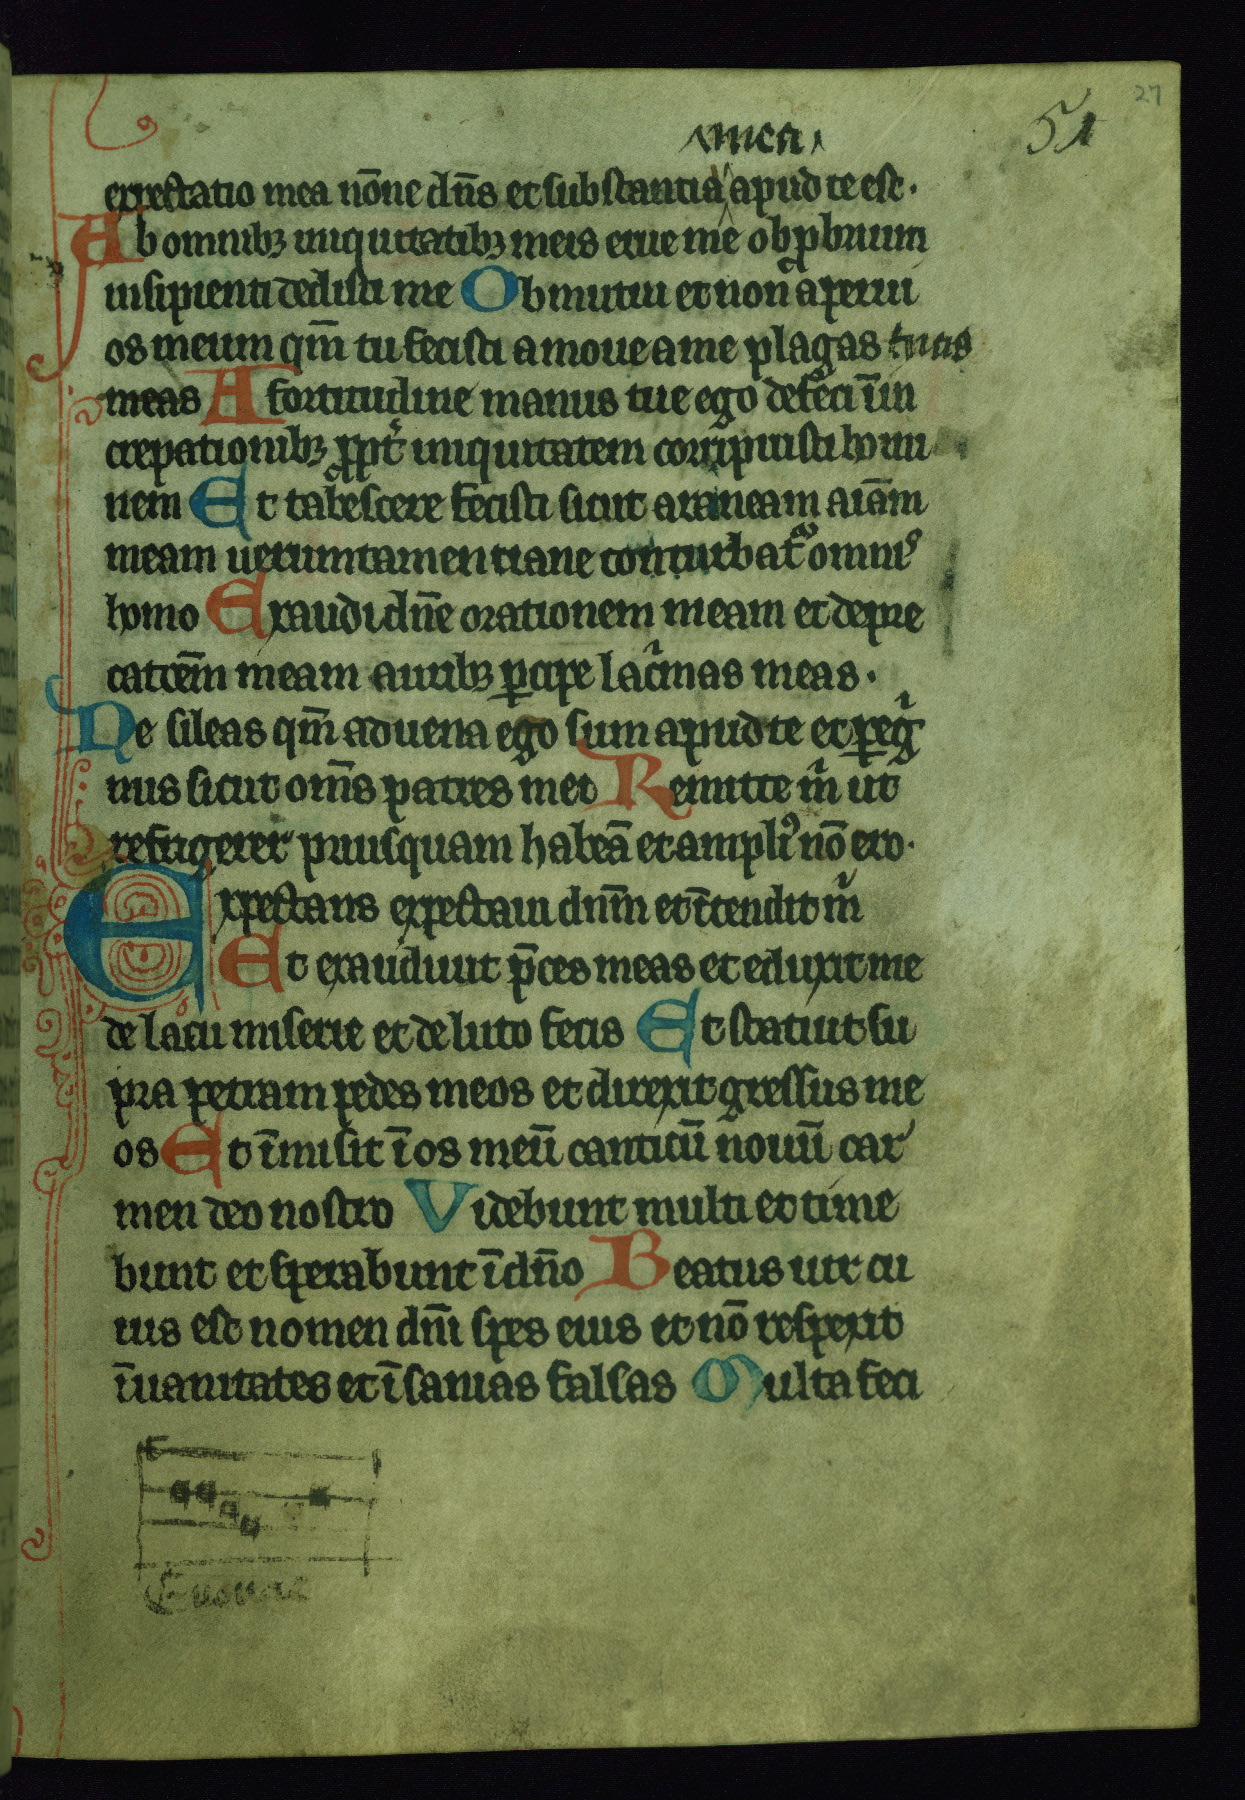 27
51
mea
expectatio mea nōne dn̄s et substantia apud te est.
Ab omnibꝫ iniquitatibꝫ meis erue me obꝓbrium
insipienti dedisti me Obmutui et non aperui
os meum qm̄ tu fecisti amoue a me plagas tuas
meas A fortitudine manus tue ego defeci ī in
crepationibꝫ ꝓpt̄ iniquitatem corripuisti homi
nem Et tabescere fecisti sicut araneam aīam
meam ueruntamen uane conturbat᷑ omnis
homo Exaudi dn̄e orationem meam et depre
catōem meam auribꝫ ꝑcipe lac̄mas meas.
Ne sileas qm̄ aduena ego sum apud te et ꝑegͥ
nus sicut om̄s patres mei Remitte mͥ ut
refrigerer priusquam habeā et ampliꝰ nō ero.
Expectans expectaui dnm̄ et ītendit mͥ
Et exaudiuit p̄ces meas et eduxit me
de lacu miserie et de luto fecis Et statuit su
pra petram pedes meos et direxit gressus me
os Et īmisit ī os meū canticū nouū car
men deo nostro Videbunt multi et time
bunt et sperabunt ī dn̄o Beatus uir cu
ius est nomen dn̄i spes eius et nō respexit
ī uanitates et ī sanias falsas Multa feci
Euouae